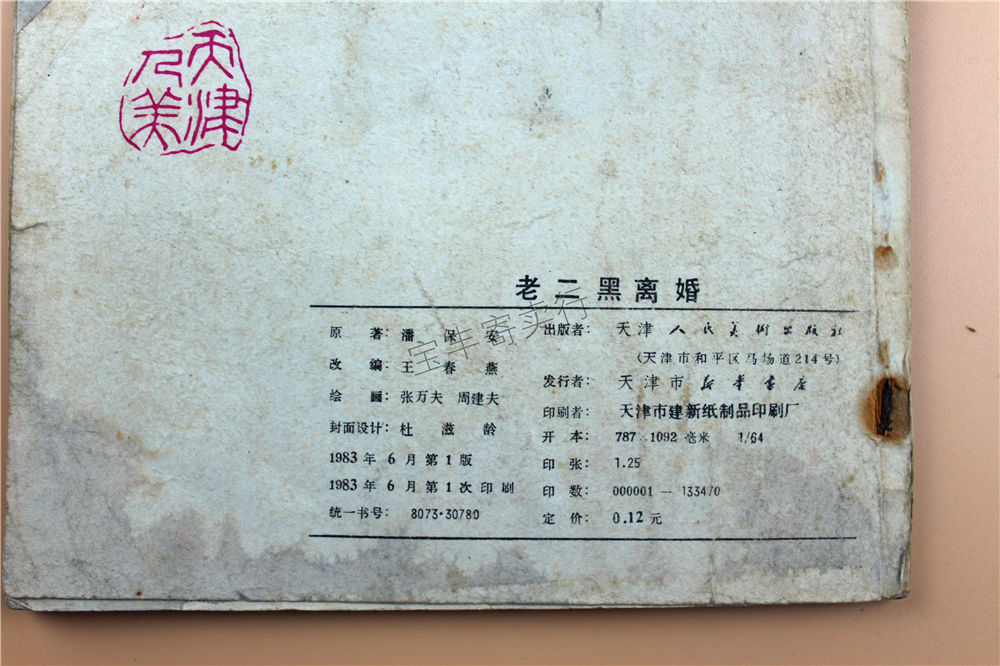 天津
人美
老二黑离婚
原著：潘保安
改编：王春燕
绘圖：张万夫 周建夫
封面设计：杜滋龄
1983年6月第1版
1983年6月第1次印刷
统一书号：8073·30780
出版者：天津人民美術出版社
（天津市和平区马场道214号）
发行者：天津市新华书店
印刷者：天津市建新纸制品印刷厂
开本：787×1092毫米 1/64
印张：1.25
印数：000001—133470
定价：0.12元
宝丰寄卖行